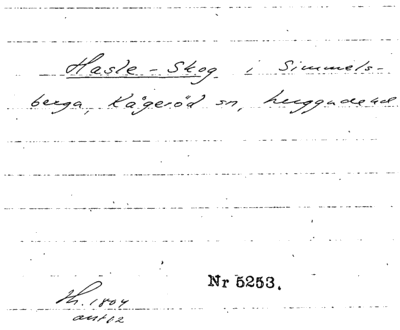 Hasle-Skog i Simmels-
berga, Kågeröd sn, huggnad
Nr 5253.
1804